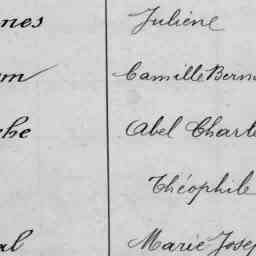 nes Juliene
m Camille Bern
che Abel Charle
Théophile
al Marie Josep